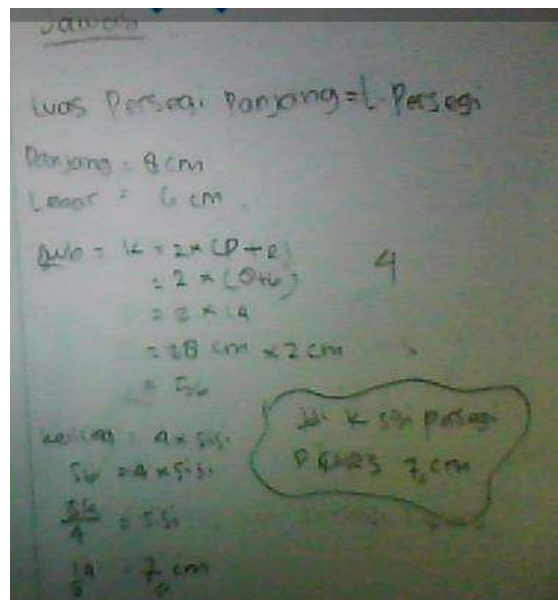 Jawab
Luas Persegi Panjang = L. Persegi
Panjang = 8 cm
Lebar = 6 cm
= k = 2 × (P + l)
= 2 × (8+6)
= 2 × 14
4
= 28 cm × 2 cm
= 56
keliling = 4 × sisi
56 = 4 × sisi
56/4 = sisi
14 = 7 cm
Jdi k sisi persegi
7 cm